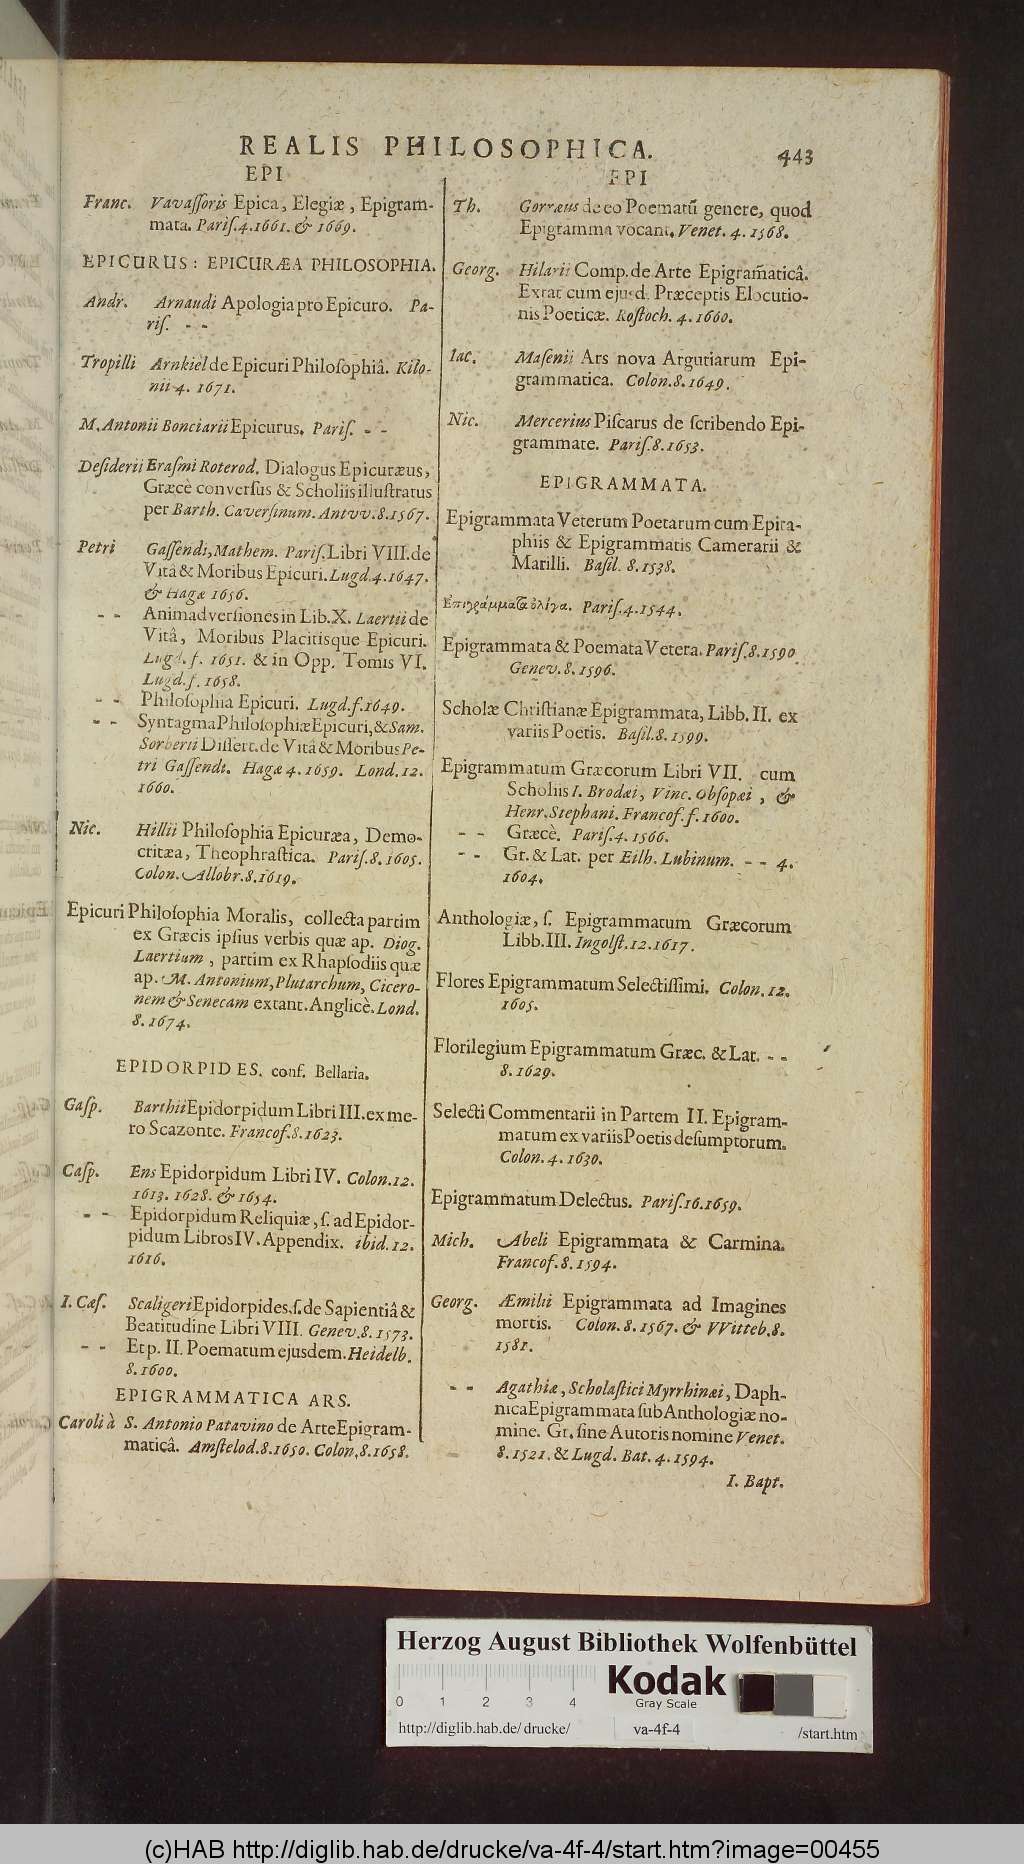 REALIS PHILOSOPHICA. 443
EPI
Franc. Vavaſſoris Epica, Elegiæ, Epigram-
mata. Pariſ. 4. 1661. & 1669.
EPICURUS: EPICURÆA PHILOSOPHIA.
Andr. Arnaudi Apologia pro Epicuro. Pa-
riſ. - -
Tropilli Arnkiel de Epicuri Philoſophiâ. Kilo-
nii 4. 1671.
M. Antonii Bonciarii Epicurus. Pariſ. - -
Deſiderii Eraſmi Roterod. Dialogus Epicuræus,
Græcè converſus & Scholiis illuſtratus
per Barth. Caverſinum. Antvv. 8. 1567.
Petri Gaſſendi, Mathem. Pariſ. Libri VIII. de
Vitâ & Moribus Epicuri. Lugd. 4. 1647.
& Hagæ 1656.
- - Animadverſiones in Lib. X. Laertii de
Vitâ, Moribus Placitisque Epicuri.
Lugd. f. 1651. & in Opp. Tomis VI.
Lugd. f. 1658.
- - Philoſophia Epicuri. Lugd. f. 1649.
- - Syntagma Philoſophiæ Epicuri, & Sam.
Sorberii Diſſert. de Vitâ & Moribus Pe-
tri Gaſſendi. Hagæ 4. 1659. Lond. 12.
1660.
Nic. Hillii Philoſophia Epicuræa, Demo-
critæa, Theophraſtica. Pariſ. 8. 1605.
Colon. Allobr. 8. 1619.
Epicuri Philoſophia Moralis, collecta partim
ex Græcis ipſius verbis quæ ap. Diog.
Laertium, partim ex Rhapſodiis quæ
ap. M. Antonium, Plutarchum, Cicero-
nem & Senecam extant. Anglicè. Lond.
8. 1674.
EPIDORPIDES. conf. Bellaria.
Gaſp. Barthii Epidorpidum Libri III. ex me-
ro Scazonte. Francof. 8. 1623.
Caſp. Ens Epidorpidum Libri IV. Colon. 12.
1613. 1628. & 1654.
- - Epidorpidum Reliquiæ, ſ. ad Epidor-
pidum Libros IV. Appendix. ibid. 12.
1616.
I. Cæſ. Scaligeri Epidorpides, ſ. de Sapientiâ &
Beatitudine Libri VIII. Genev. 8. 1573.
- - Et p. II. Poematum ejusdem. Heidelb.
8. 1600.
EPIGRAMMATICA ARS.
Caroli à S. Antonio Patavino de Arte Epigram-
maticâ. Amſtelod. 8. 1650. Colon. 8. 1658.
EPI
Th. Gorræus de eo Poematũ genere, quod
Epigramma vocant. Venet. 4. 1568.
Georg. Hilarii Comp. de Arte Epigram̃aticâ.
Extat cum ejusd. Præceptis Elocutio-
nis Poeticæ. Roſtoch. 4. 1660.
Iac. Maſenii Ars nova Argutiarum Epi-
grammatica. Colon. 8. 1649.
Nic. Mercerius Piſcarus de ſcribendo Epi-
grammate. Pariſ. 8. 1653.
EPIGRAMMATA.
Epigrammata Veterum Poetarum cum Epita-
phiis & Epigrammatis Camerarii &
Marilli. Baſil. 8. 1538.
Ἐπιγράμματα ὀλίγα. Pariſ. 4. 1544.
Epigrammata & Poemata Vetera. Pariſ. 8. 1590
Genev. 8. 1596.
Scholæ Chriſtianæ Epigrammata, Libb. II. ex
variis Poetis. Baſil. 8. 1599.
Epigrammatum Græcorum Libri VII. cum
Scholiis I. Brodæi, Vinc. Obſopæi, &
Henr. Stephani. Francof. f. 1600.
- - Græcè. Pariſ. 4. 1566.
- - Gr. & Lat. per Eilh. Lubinum. - - 4.
1604.
Anthologiæ, ſ. Epigrammatum Græcorum
Libb. III. Ingolſt. 12. 1617.
Flores Epigrammatum Selectiſſimi. Colon. 12.
1605.
Florilegium Epigrammatum Græc. & Lat. - -
8. 1629.
Selecti Commentarii in Partem II. Epigram-
matum ex variis Poetis deſumptorum.
Colon. 4. 1630.
Epigrammatum Delectus. Pariſ. 16. 1659.
Mich. Abeli Epigrammata & Carmina.
Francof. 8. 1594.
Georg. Æmilii Epigrammata ad Imagines
mortis. Colon. 8. 1567. & VVitteb. 8.
1581.
- - Agathiæ, Scholaſtici Myrrhinæi, Daph-
nica Epigrammata ſub Anthologiæ no-
mine. Gr. ſine Autoris nomine Venet.
8. 1521. & Lugd. Bat. 4. 1594.
I. Bapt.
Herzog August Bibliothek Wolfenbüttel
Kodak
Gray Scale
0 1 2 3 4
http://diglib.hab.de/drucke/ va-4f-4 /start.htm
(c)HAB http://diglib.hab.de/drucke/va-4f-4/start.htm?image=00455